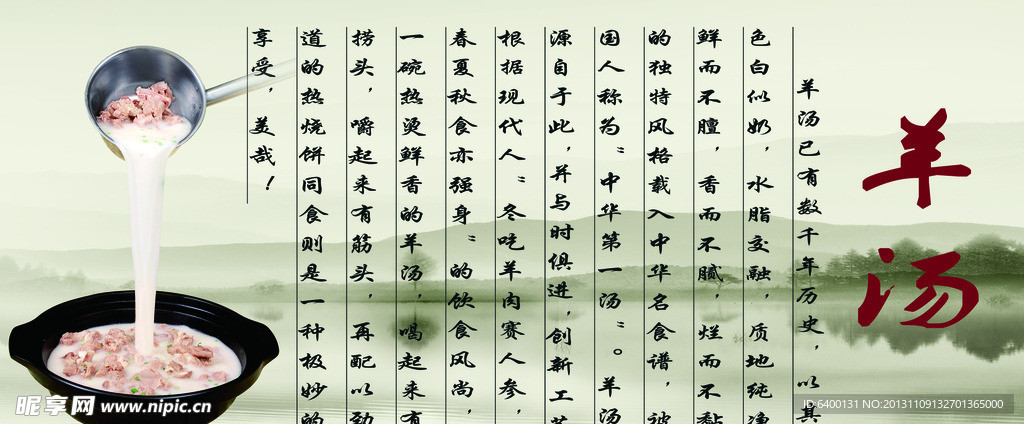 羊汤
羊汤已有数千年历史,以其
色白似奶,水脂交融,质地纯净
鲜而不膻,香而不腻,烂而不黏
的独特风格载入中华名食谱,被
国人称为:“中华第一汤”。羊汤
源自于此,并与时俱进,创新工艺
根据现代人:“冬吃羊肉赛人参,
春夏秋食亦强身”的饮食风尚,
一碗热烫鲜香的羊汤,喝起来有
捞头,嚼起来有筋头,再配以劲
道的热烧饼同食则是一种极妙的
享受,美哉!
昵享网 www.nipic.cn
ID:6400131 NO:20131109132701365000